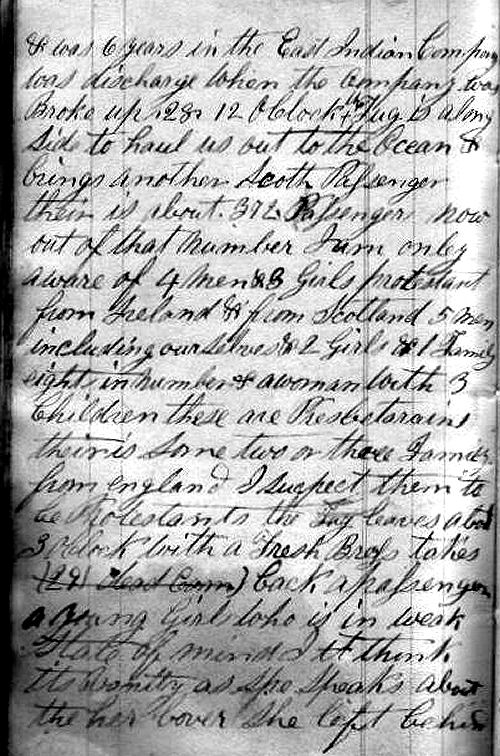 & was 6 years in the East Indian Compan
was discharge when the Company was
Broke up 28, 12 OClock the Tug is along
side to haul us out to the Ocean &
brings another Scoth Passenger
their is about 372 Passenger now
out of that number I am only
aware of 4 men & 3 Girls protestant
from Ireland & from Scotland 5 men
including ourselves & 2 Girls & 1 Family
eight in number & a woman with 3
Children these are Presbetarians
their is some two or three Familes
from england I suspect them to
be Protestants the Tug leaves about
3 oclock with a Fresh Bross takes
(29) back a passenger
a young Girl who is in weak
State of mind I think
its vanity as she speaks about
the her lover she left behind